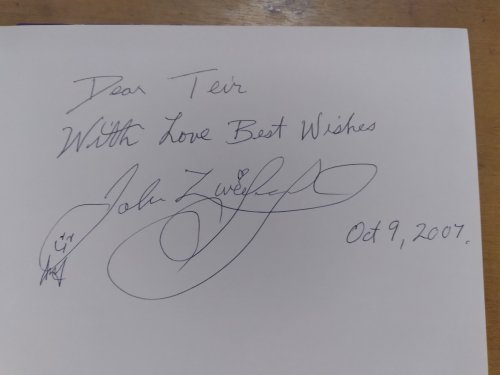 Dear Teir
With Love Best Wishes
John
Oct 9, 2007.